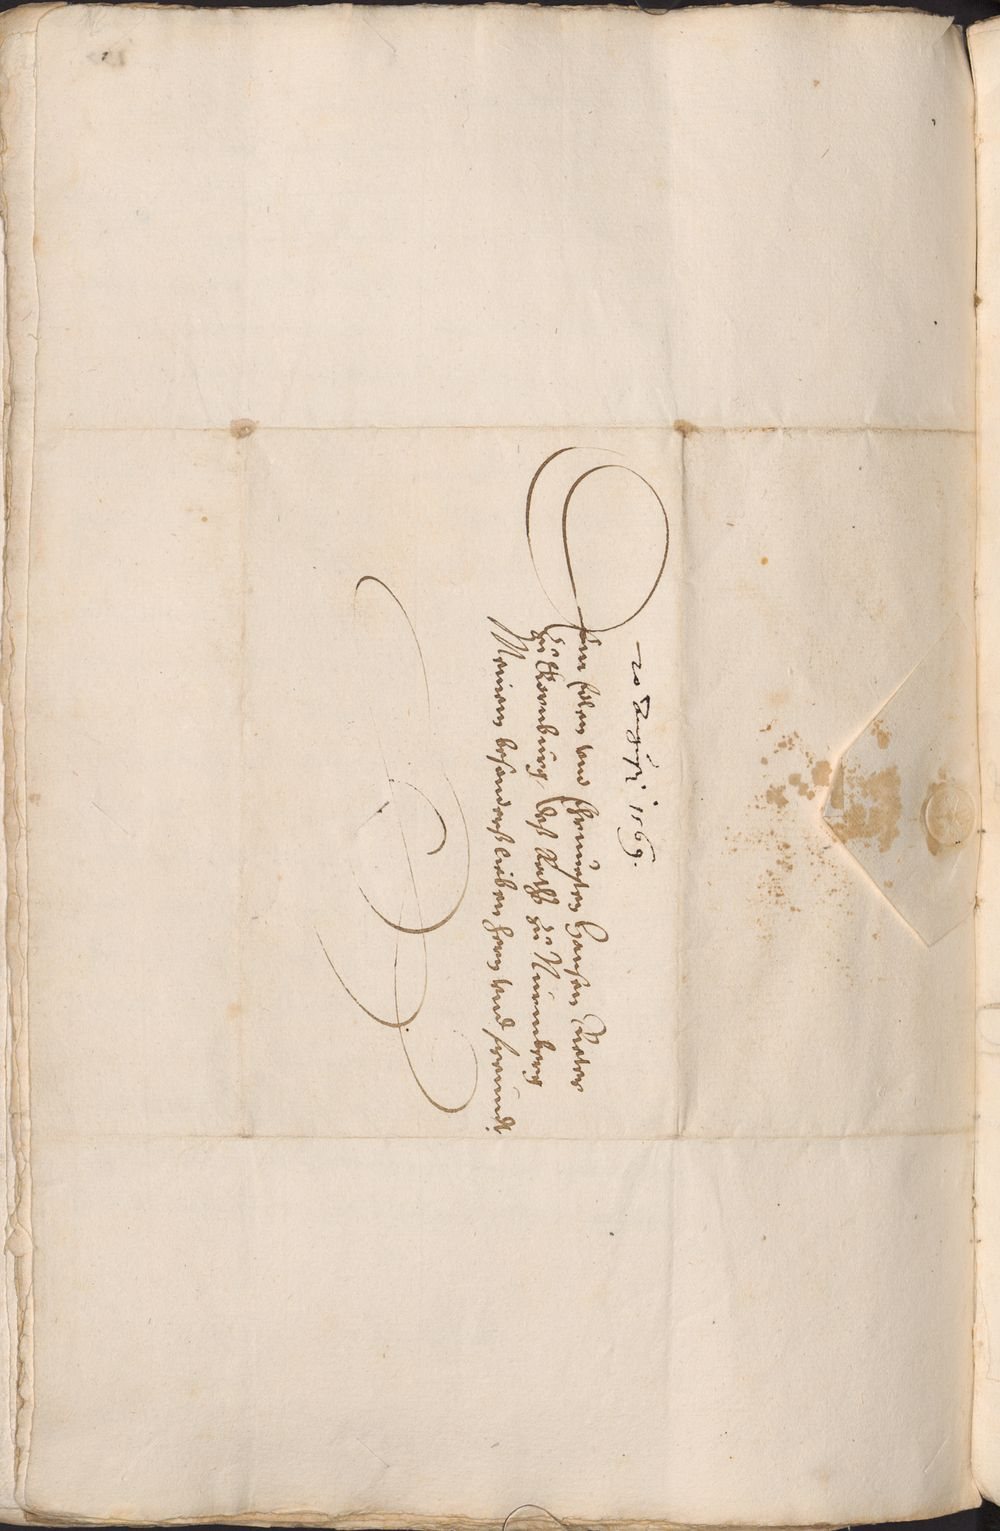 20 Augusti 1569.
Dem Edlen vnd Ehrnuesten Hansen Rieter
zu Kornburg deß Raths zu Nürmberg
Meinem besonders lieben Herrn vnd freundt.